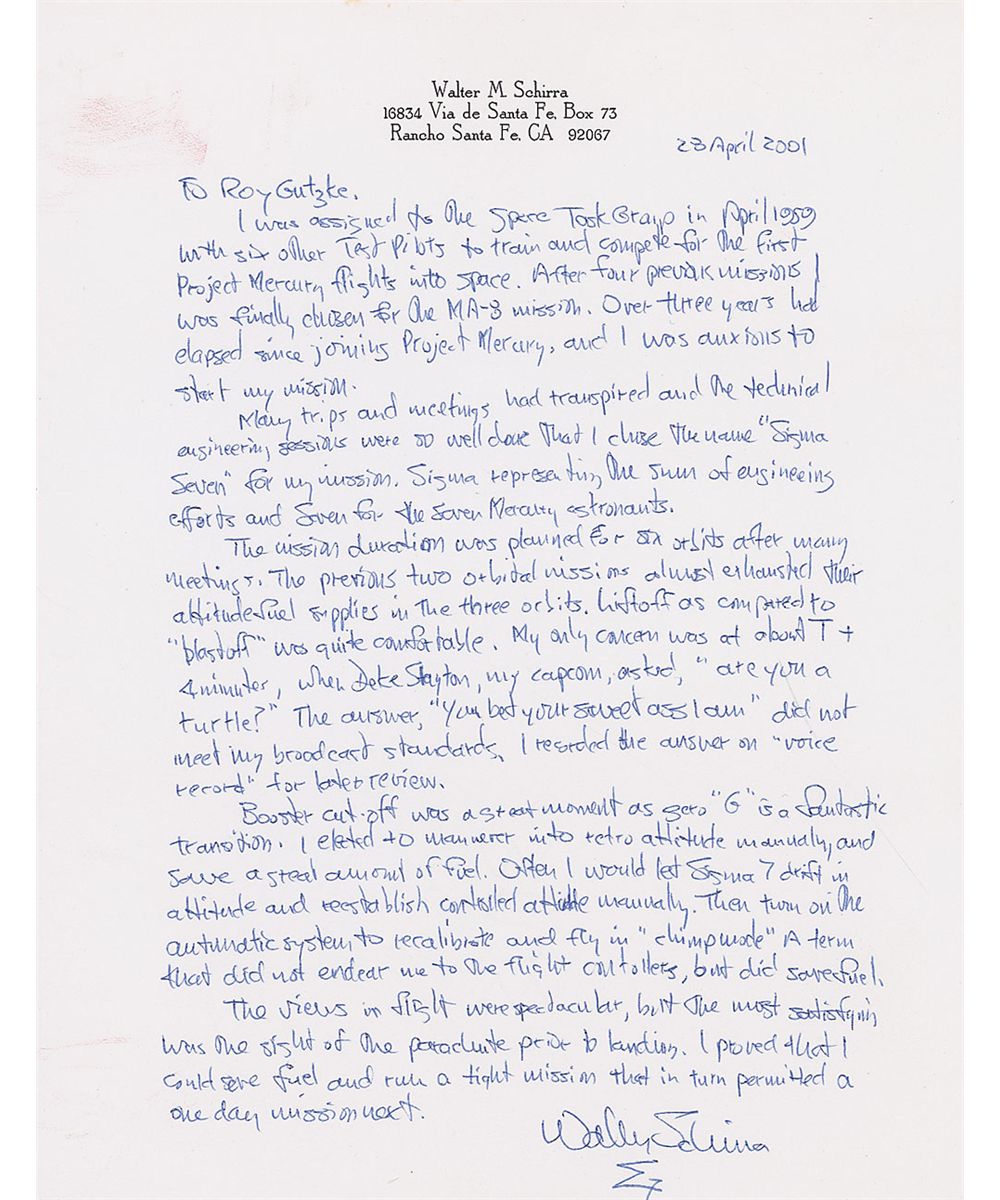 Walter M. Schirra
16834 Via de Santa Fe, Box 73
Rancho Santa Fe, CA 92067
23 April 2001
To Roy Gutzke.
I was assigned to the Space Task Group in April 1959
with six other Test Pilots to train and compete for the first
Project Mercury flights into space. After four previous missions I
was finally chosen for the MA-8 mission. Over three years had
elapsed since joining Project Mercury, and I was anxious to
start my mission.
Many trips and meetings had transpired and the technical
engineering sessions were so well done that I chose the name "Sigma
Seven" for my mission. Sigma representing the sum of engineering
efforts and Seven for the Seven Mercury astronauts.
The mission duration was planned for six orbits after many
meetings. The previous two orbital missions almost exhausted their
attitude fuel supplies in the three orbits. Liftoff as compared to
"blastoff" was quite comfortable. My only concern was at about T +
4 minutes, when Deke Slayton, my capcom, asked, "are you a
turtle?" The answer, "You bet your sweet ass I am" did not
meet my broadcast standards, I recorded the answer on "voice
record" for later review.
Booster cut-off was a great moment as zero "G" is a fantastic
transition. I elected to maneuver into retro attitude manually, and
save a great amount of fuel. Often I would let Sigma 7 drift in
attitude and reestablish controlled attitude manually. Then turn on the
automatic system, to recalibrate and fly in "chimp mode" A term
that did not endear me to the flight controllers, but did save fuel.
The views in flight were spectacular, but the most satisfying
was the sight of the parachute prior to landing. I proved that I
could save fuel and run a tight mission that in turn permitted a
one day mission next.
Wally Schirra
Σ7